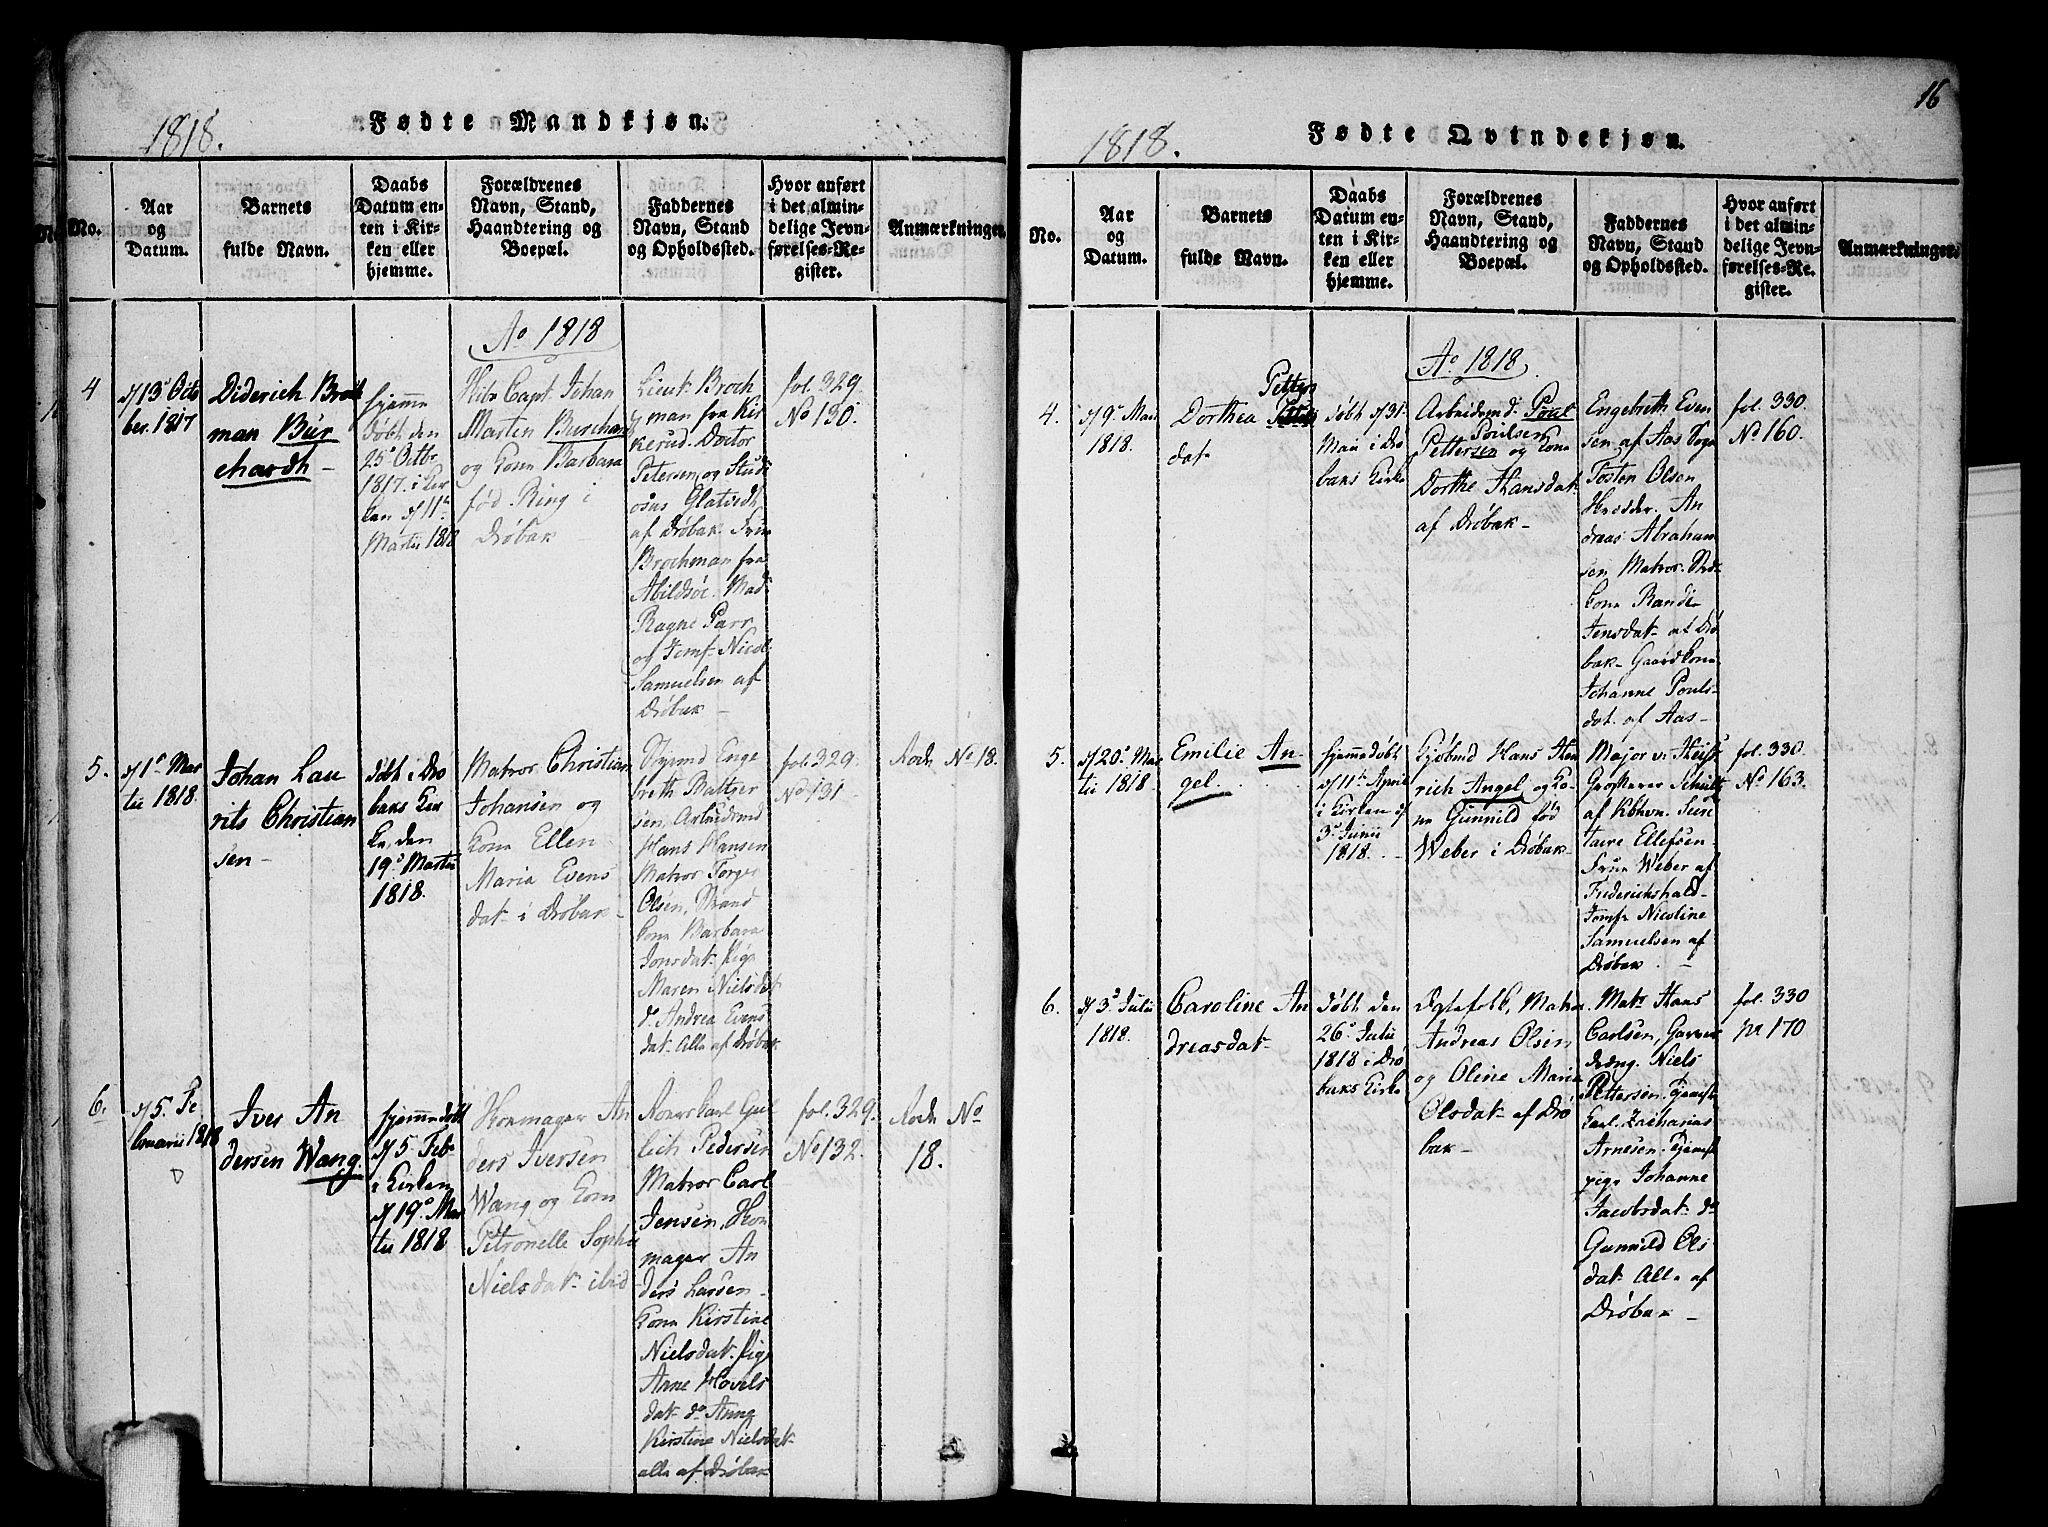 16
1818.
Fødte Mandkjøn.
No.
Aar
og
Datum.
Barnets
fulde Navn.
Daabs
Datum en-
ten i Kir-
ken eller
hjemme.
Forældrenes
Navn, Stand,
Haandtering og
Boepæl.
Faddernes
Navn, Stand
og Opholdssted.
Hvor anført
i det almin-
delige Jevn-
førelses-Re-
gister.
Anmærkninger.
Ao 1818
4
d 13de Octo
ber. 1817
Diderich Broch
man Bur
chardt -
hjemme
døbt den
25de Octbr
1817. i Kir
ken d 11te
Martii 1818
Skibs Capt. Johan
Martin Burchard
og Kone Barbara
fød Ring i
Drøbak -
Lieut. Broch
man fra Kir
kerud. Doctor
Petersen, og Stud
osus Glatvedt
af Drøbak. Frue
Brochman fra
Abildsöe. Mad
Ragne Parr
og Jomf. Nicol
Samuelsen af
Drøbak -
fol. 329.
No 130.
5.
d 1ste Mar
tii 1818.
Johan Lau
rits Christian
sen -
døbt i Drø
baks Kir
ke, den
19de Martii
1818.
Matros Christian
Johansen og
Kone Ellen
Maria Evens
dat. i Drøbak -
Enge
breth Battser
sen, Arbeidsmd
Hans Hansen
Matros Torger
Olsen, Strand
kone Barbara
Jonsdat. Pige
Maren Nielsdat
do Andrea Evens
dat. Alle af Drøbak
fol. 329.
No 131.
No 18.
6.
d 5. Fe
bruarii 1818
Iver An
dersen Wang.
hjemmedøbt
d 5 Feb.
i Kirken
d 19de Mar
tii 1818
Skomager An
ders Iversen
Wang og Kone
Petronelle Sophie
Nielsdat. ibid
Gul
lich Pedersen
Matros Carl
Jensen, Sko
mager An
ders Larsen
Kone Kirstine
Nielsdat. Pige
Arne Hovels
dat. do Anne
Kirstine Nielsdat.
alle af Drøbak
fol. 329.
No 132.
No
18.
1818.
Fødte Qvindekjøn.
No.
Aar
og
Datum.
Barnets
fulde Navn.
Daabs
Datum en-
ten i Kir-
ken eller
hjemme.
Forældrenes
Navn, Stand,
Haandtering og
Boepæl.
Faddernes
Navn, Stand
og Opholdssted.
Hvor anført
i det almin-
delige Jevn-
førelses-Re-
gister.
Anmærkninger.
Ao 1818
4.
d 9de Maii
1818.
Petters
Dorthea
dat.
døbt d 31.
Maii i Drø
baks Kirke
Arbeidsmd. Poul
Poulsen
Pettersen og Kone
Dorthe Hansdat.
af Drøbak -
Engebreth Even
sen af Aas Sogn
Tosten Olsen
Skrædder. An
dreas Abraham
sen Matros. Strd.
kone Randi
Jensdat. af Drø
bak - Gaardkone
Johanne Pouls-
dat. af Aas -
fol. 330.
No 160.
5.
d 20de Mar
tii 1818.
Emilie An
gel.
hjemmedøbt
d 11te April
i Kirken d
3de Junii
1818.
Kjøbmd Hans Hen
rich Angel og Ko
ne Gunnild fød
Weber i Drøbak -
Major v.
Grosserer Schultz
af Kbhvn. Secre
taire Ellefsen
Frue Weber af
Frederichshald -
Jomfr Nicoline
Samuelsen af
Drøbak. -
fol. 330.
No 163.
6.
d 3de Julii
1818.
Caroline An
dreasdat.
døbt den
26de Julii
1818 i Drø
baks Kirke
Ægtefolk, Matros
Andreas Olsen
og Oline Maria
Olsdat. af Drø
bak -
Matr. Hans
Carlsen, Garver
dreng. Niels
Pettersen. Tjeneste
karl. Zacharias
Arnesen. Tjenest
pige Johanne
Jacobsdat. do
Gunnild Ols
dat. Alle af
Drøbak -
fol. 330
No 170.